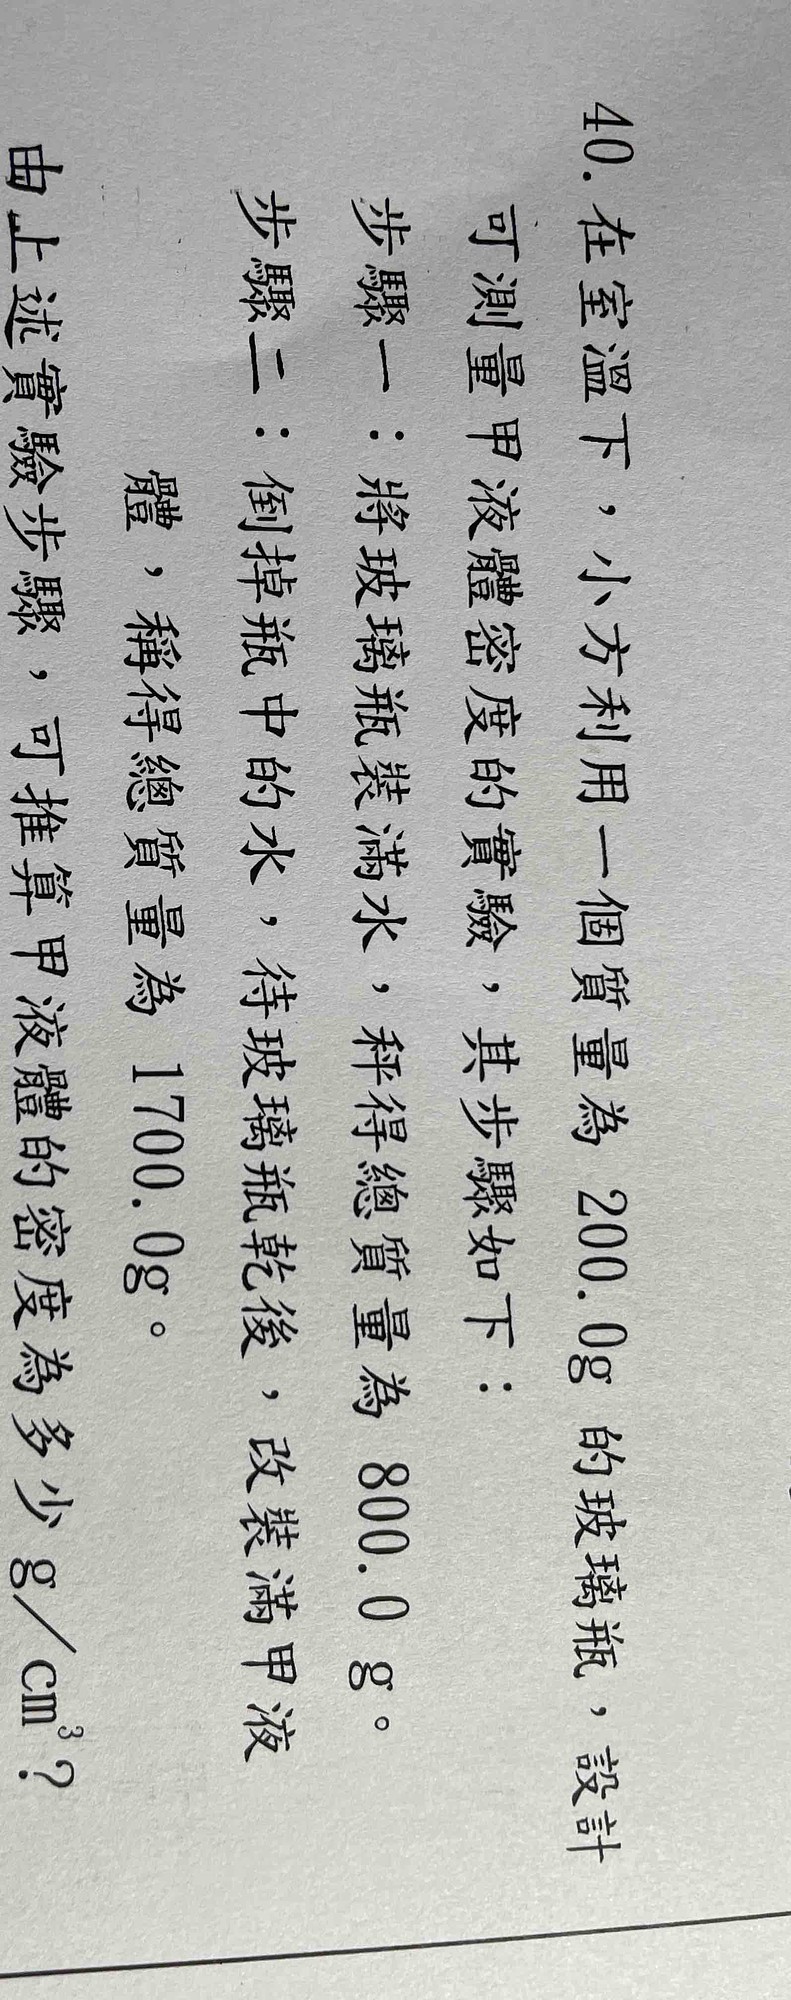 40.在室溫下，小方利用一個質量為 200.0g 的玻璃瓶，設計
可測量甲液體密度的實驗，其步驟如下：
步驟一：將玻璃瓶裝滿水，秤得總質量為 800.0 g。
步驟二：倒掉瓶中的水，待玻璃瓶乾後，改裝滿甲液
體，稱得總質量為 1700.0g。
由上述實驗步驟，可推算甲液體的密度為多少g/cm³？